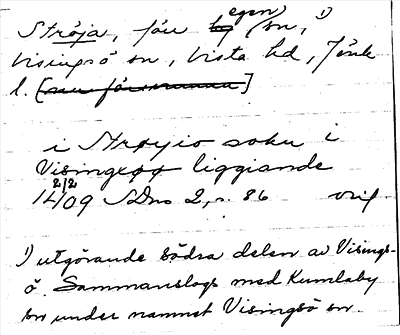 Ströja, förr egen sn, 1)
Visingsö sn, Vista hd, Jönk
l. [nu försvunnen]
i Strøyio sokn i
Visingxøø liggiande
2/2
1409 SDns 2, s. 86 orig
1) utgörande södra delen av Visings-
ö. Sammanslogs med Kumlaby
sn under namnet Visingsö sn.